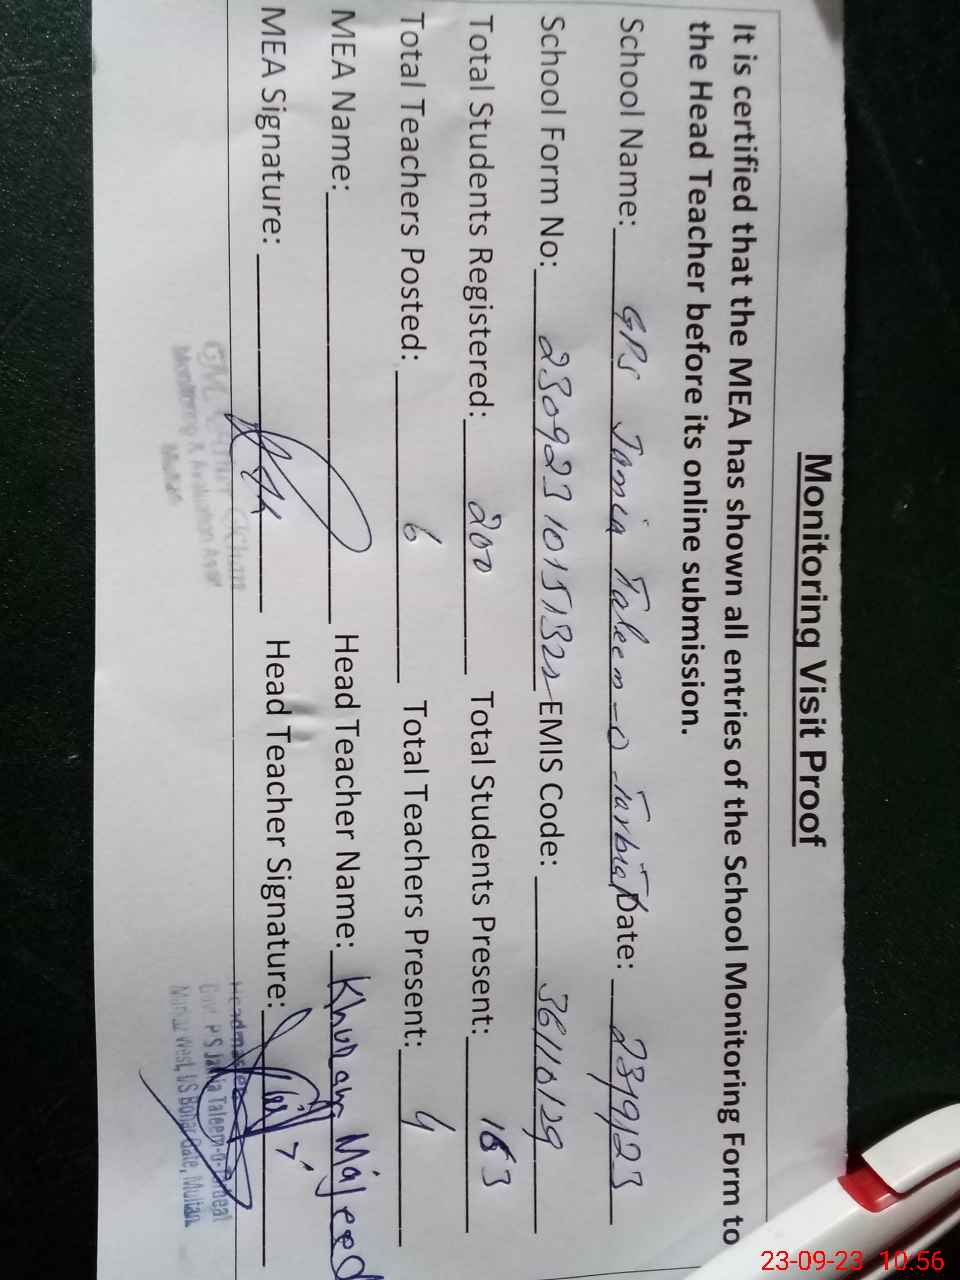 Monitoring Visit Proof
It is certified that the MEA has shown all entries of the School Monitoring Form to
the Head Teacher before its online submission.
School Name: GPS Jamia Taleem-O-Tarbiat Date: 23/9/23
School Form No: EMIS Code: 36110129
Total Students Registered: 200 Total Students Present: 163
Total Teachers Posted: 6 Total Teachers Present: 4
MEA Name: Head Teacher Name: Khuram Majeed
MEA Signature: Head Teacher Signature:
Monitoring & Evaluation
Multan
Headmaster
Govt. P S Jamia Taleem-o-
West, I/S Bohar Gate, Multan
23-09-23 10:56